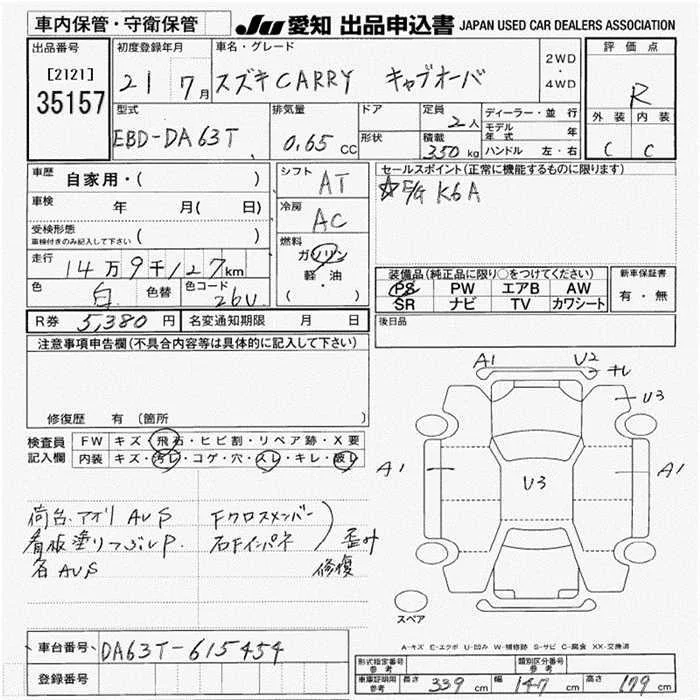 車内保管・守衛保管 JU 愛知 出品申込書 JAPAN USED CAR DEALERS ASSOCIATION
出品番号 初度登録年月 車名・グレード 2WD・4WD 評価点
[2121] 21 7月 スズキCARRY キャブオーバ R
35157
型式 排気量 ドア 定員 2人 ディーラー・並行 外装 内装
EBD-DA63T 0.65 CC 形状 積載 350kg モデル年式 年 C C
ハンドル 左・右
車歴 自家用・( ) シフト AT セールスポイント(正常に機能するものに限ります)
☆F/G K6A
車検 年 月(日) 冷房 AC
受検形態 車検付きのみ記入して下さい ( )
燃料 ガソリン・軽油・( )
走行 14万9千127km
装備品(純正品に限り○をつけてください) 新車保証書
PS PW エアB AW 有・無
SR ナビ TV カワシート
色 白 色替 色コード 26U
R券 5,380円 名変通知期限 月 日 後日品
注意事項申告欄(不具合内容等は具体的に記入して下さい)
修復歴 有 (箇所
検査員記入欄 FW キズ・飛石・ヒビ割・リペア跡・X要
内装 キズ・汚レ・コゲ・穴・スレ・キレ・破レ
A1 U2 ナレ
U3
A1 U3 A1
荷台、アオリ AUS Fクロスメンバー
看板塗りつぶしP. 右Fインパネ 歪み
各AUS 修復
スペア
A-キズ E-エクボ U-凹み W-補修跡 S-サビ C-腐食 XX-交換済
車台番号 DA63T-615454
登録番号
形式指定番号 参考 類別区分番号 参考
車庫証明用 参考 長さ 339cm 幅 147cm 高さ 179cm